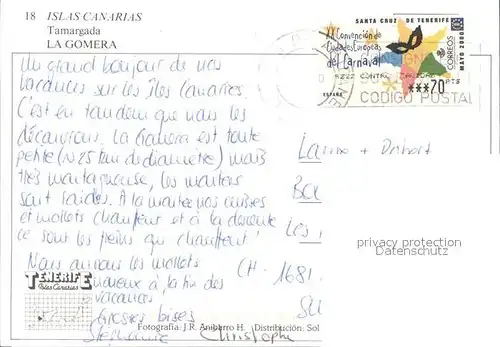 18 ISLAS CANARIAS
Tamargada
LA GOMERA
Un grand bonjour de nos
vacances sur les îles canaries.
C'est en tandem que nous les
découvrons. La Gomera est toute
petite (~25 km de diamètre) mais
très montagneuse, les montées
sont raides. À la montée nos cuisses
et mollets chauffent et à la descente
ce sont les freins qui chauffent!
Nous aurons les mollets
à la fin des
vacances
Grosses bises
Stéphanie Christophe
TENERIFE
Islas Canarias
Fotografía: J.R. Anibarro H. Distribución: Sol
SANTA CRUZ DE TENERIFE
XX Convención de
Ciudades Europeas
del Carnaval
CORREOS
MAYO 2000
ESPAÑA
***70 PTS
CODIGO POSTAL
Les
CH-1681
privacy protection
Datenschutz